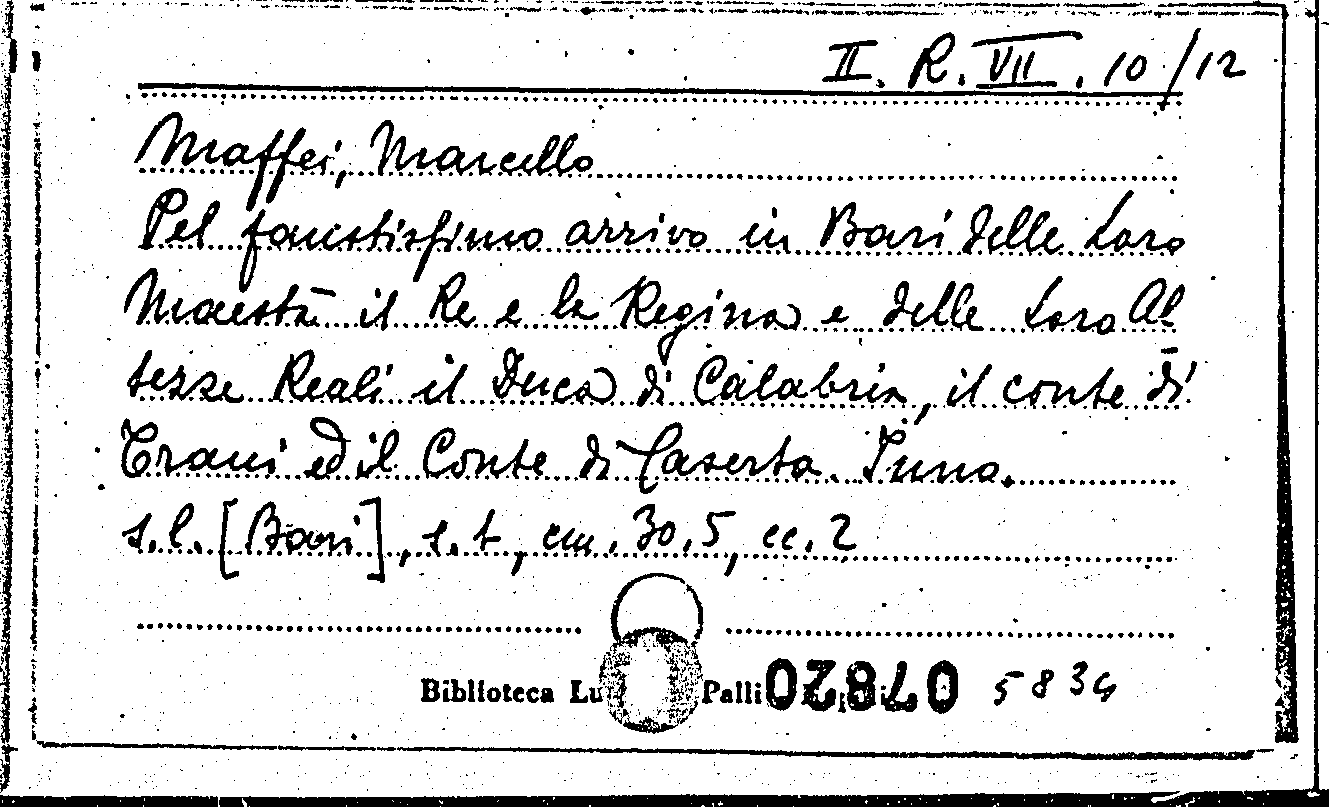 II. R. VII. 10/12
Maffei, Marcello
Pel faustissimo arrivo in Bari delle Loro
Maestà il Re e la Regina e delle Loro Al
tezze Reali il Duca di Calabria, il conte di
Trani ed il Conte di Caserta. Inno.
s.l. [Bari], s.t, cm. 30,5, cc. 2
Biblioteca Lu Palli 07820 5834